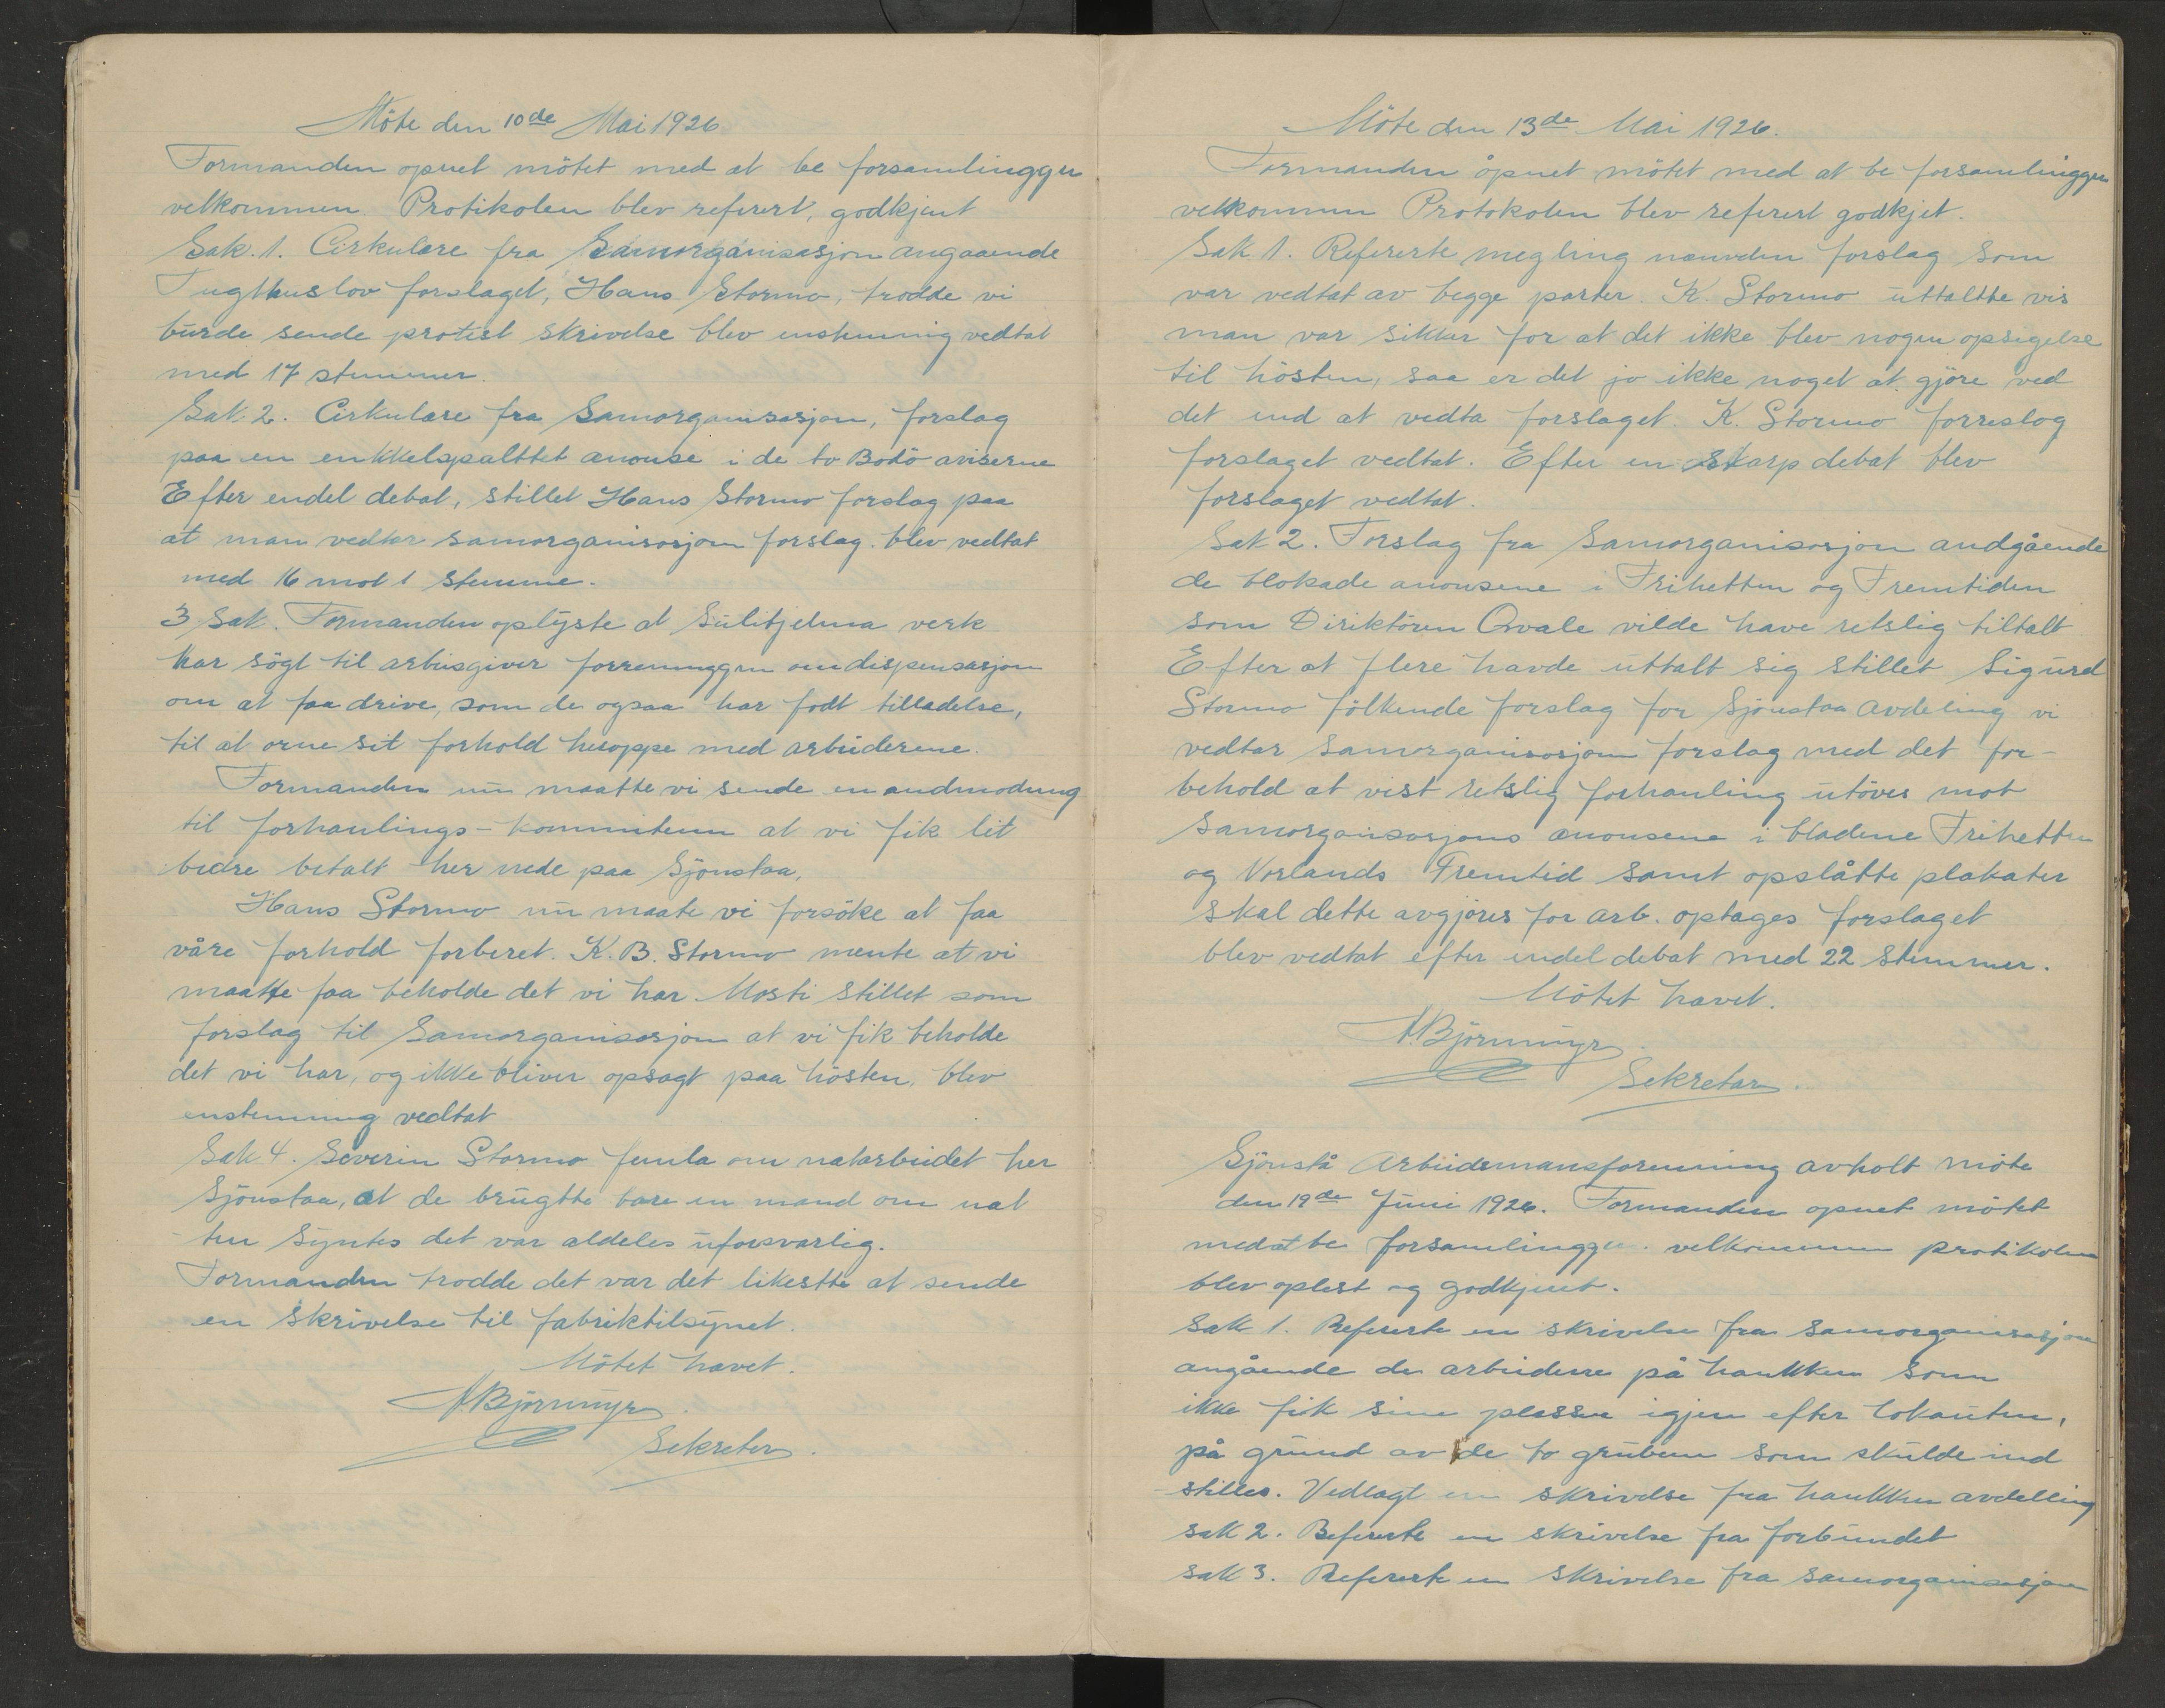 Möte den 10de Mai 1926
Formanden opnet mötet med at be forsamlinggen
velkommen. Protikolen blev referert, godkjent
Sak. 1. Cirkulære fra Samorganisasjon angaaende
Tugthuslov forslaget, Hans Stormo, trodde vi
burde sende protest skrivelse blev enstemmig vedtat
med 17 stemmer.
Sak. 2. Cirkulære fra Samorganisasjon, forslag
paa en enkkelspalttet anonse i de to Bodö aviserne
Efter endel debat, stillet Hans Stormo forslag paa
at man vedtar samorganisasjon forslag. blev vedtat
med 16 mot 1 stemme.
3 Sak. Formanden oplyste at Sulitjelma verk
har sögt til arbeisgiver forreninggen om dispensasjon
om at faa drive, som de ogsaa har fådt tilladelse,
til at orne sit forhold heroppe med arbeiderene.
Formanden nu maatte vi sende en andmodning
til forhanlings-kommiteen at vi fik lit
bedre betalt her nede paa Sjönstaa,
Hans Stormo nu maate vi forsöke at faa
våre forhold forberet. K. B. Stormo mente at vi
maatte faa beholde det vi har. Mosti stillet som
forslag til Samorganisasjon at vi fik beholde
det vi har, og ikke bliver opsagt paa hösten, blev
enstemmig vedtat
Sak 4. Severin Stormo om natarbeidet her
Sjönstaa, at de brugtte bare en mand om nat
ten syntes det var aldeles uforsvarlig.
Formanden trodde det var det likestte at sende
en skrivelse til fabriktilsynet.
Mötet hævet.
A Björnmyr
Sekretær.
Möte den 13de Mai 1926.
Formanden åpnet mötet med at be forsamlinggen
velkommen Protokolen blev referert godkjet.
Sak 1. Refererte megling nænvden forslag som
var vedtat av begge parter. K. Stormo uttaltte vis
man var sikker for at det ikke blev nogen opsigelse
til hösten, saa er det jo ikke noget at gjöre ved
det end at vedta forslaget. K. Stormo forreslog
forslaget vedtat. Efter en skarp debat blev
forslaget vedtat.
Sak 2. Forslag fra Samorganisasjon andgående
de blokade anonsene i Frihetten og Fremtiden
som Diriktören Qvale vilde have retslig tiltalt
Efter at flere havde uttalt sig stillet Sigurd
Stormo fölkende forslag for Sjönstaa avdeling vi
vedtar samorganisasjon forslag med det for-
behold at vist retslig forhanling utöves mot
samorganisasjons anonsene i bladene Frihetten
og Norlands Fremtid samt opslåtte plakater
skal dette avgjöres for arb. optages forslaget
blev vedtat efter endel debat med 22 stemmer.
Mötet hævet.
A Björnmyr.
Sekretær.
Sjönstå Arbeidsmansforening avholt möte
den 19de Juni 1926. Formanden opnet mötet
med at be forsamlinggen velkommen protikolen
blev oplest og godkjent.
Sak 1. Refererte en skrivelse fra samorganisasjon
angående de arbeiderre på hankken som
ikke fik sine plassee igjen efter lokauten,
på grund av de to gruben som skulde ind
stilles. Vedlagt en skrivelse fra hankken avdelling
sak 2. Refererte en skrivelse fra forbundet
sak 3. Refererte en skrivelse fra samorganisasjon